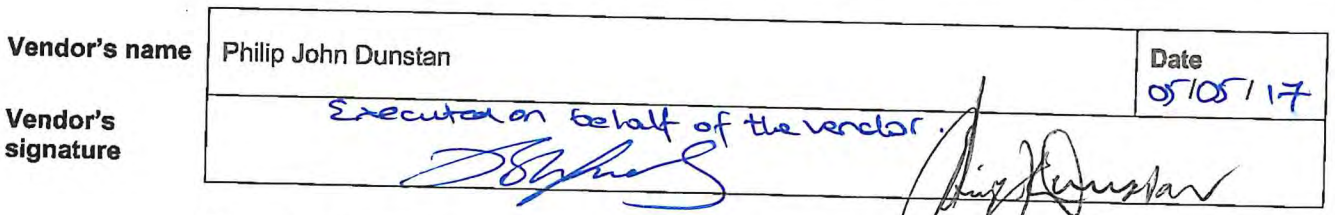 Vendor's name
Philip John Dunstan
Date
05/05/17
Vendor's signature
Executed on behalf of the vendor.
Dunstan